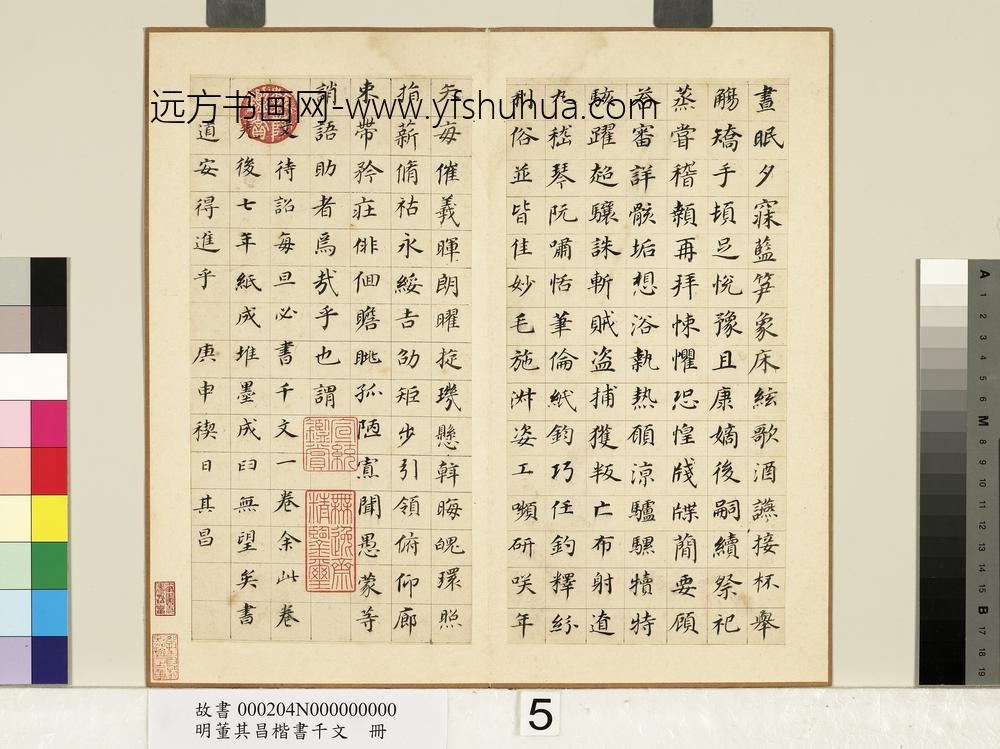 晝眠夕寐藍笋象床絃歌酒讌接杯舉
觴矯手頓足悅豫且康嫡後嗣續祭祀
蒸甞稽顙再拜悚懼恐惶牋牒簡要顧
荅審詳骸垢想浴執熱願涼驢騾犢特
駭躍超驤誅斬賊盜捕獲叛亡布射遼
丸嵇琴阮嘯恬筆倫紙鈞巧任釣釋紛
利俗並皆佳妙毛施淑姿工嚬研咲年
矢每催羲暉朗曜旋璣懸斡晦魄環照
指薪脩祜永綏吉劭矩步引領俯仰廊
束帶矜莊俳佪瞻眺孤陋寡聞愚蒙等
誚語助者焉哉乎也謂
待詔每旦必書千文一卷余此卷
先後七年紙成堆墨成臼無望矣書
道安得進乎 庚申禊日其昌
宣統鑒賞
無逸齋精鑒璽
远方书画网-www.yfshuhua.com
故書 000204N000000000
明董其昌楷書千文 冊
5
A 1 2 3 4 5 6 M 8 9 10 11 12 13 14 15 B 17 18 19